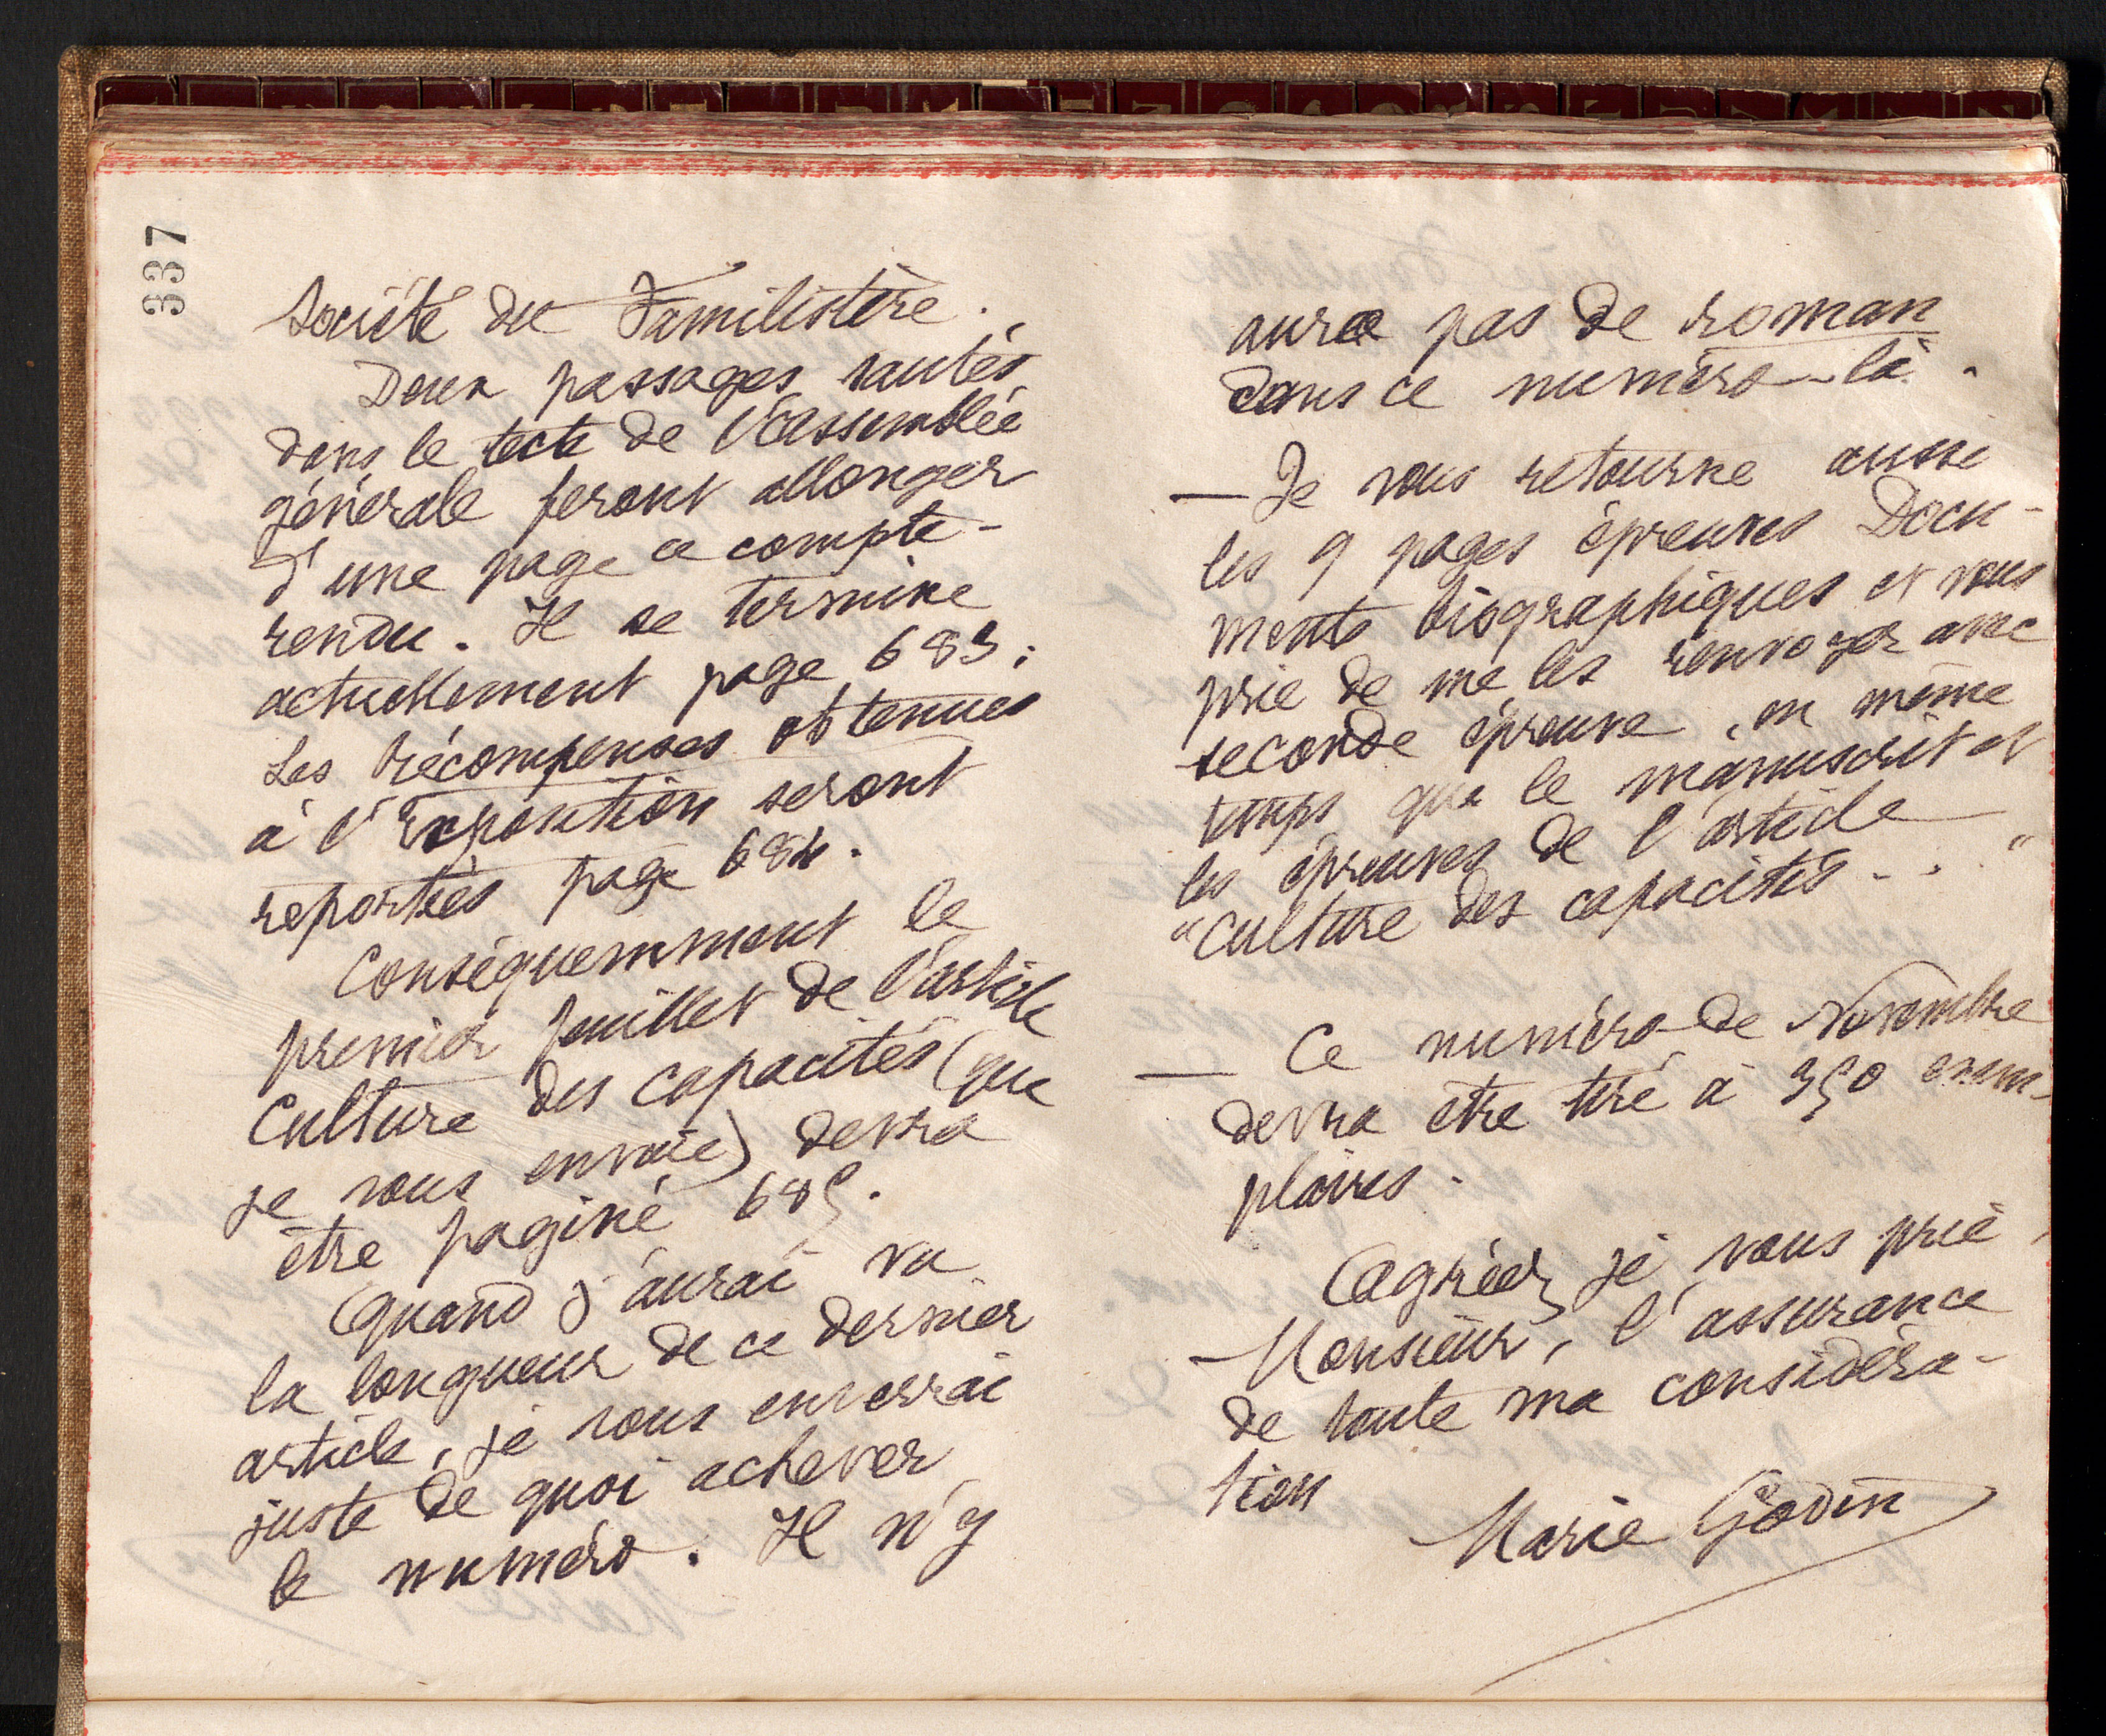 337
Société du Familistère.
Deux passages sautés
dans le texte de l'assemblée
générale feront allonger
d'une page ce compte-
rendu. Il se termine
actuellement page 683;
Les récompenses obtenues
à l'Exposition seront
reportées page 684.
Conséquemment le
premier feuillet de l'article
Culture des capacités (que
je vous envoie) devra
être paginé 685.
Quand j'aurai vu
la longueur de ce dernier
article, je vous enverrai
juste de quoi achever
le numéro. Il n'y
aura pas de roman
dans ce numéro-là.
— Je vous retourne aussi
les 9 pages épreuves Docu-
ments biographiques et vous
prie de me les renvoyer avec
seconde épreuve, en même
temps que le manuscrit et
les épreuves de l'article
"Culture des capacités..."
— Ce numéro de Novembre
devra être tiré à 350 exem-
plaires.
Agréez, je vous prie,
Monsieur, l'assurance
de toute ma considéra-
tion
Marie Godin